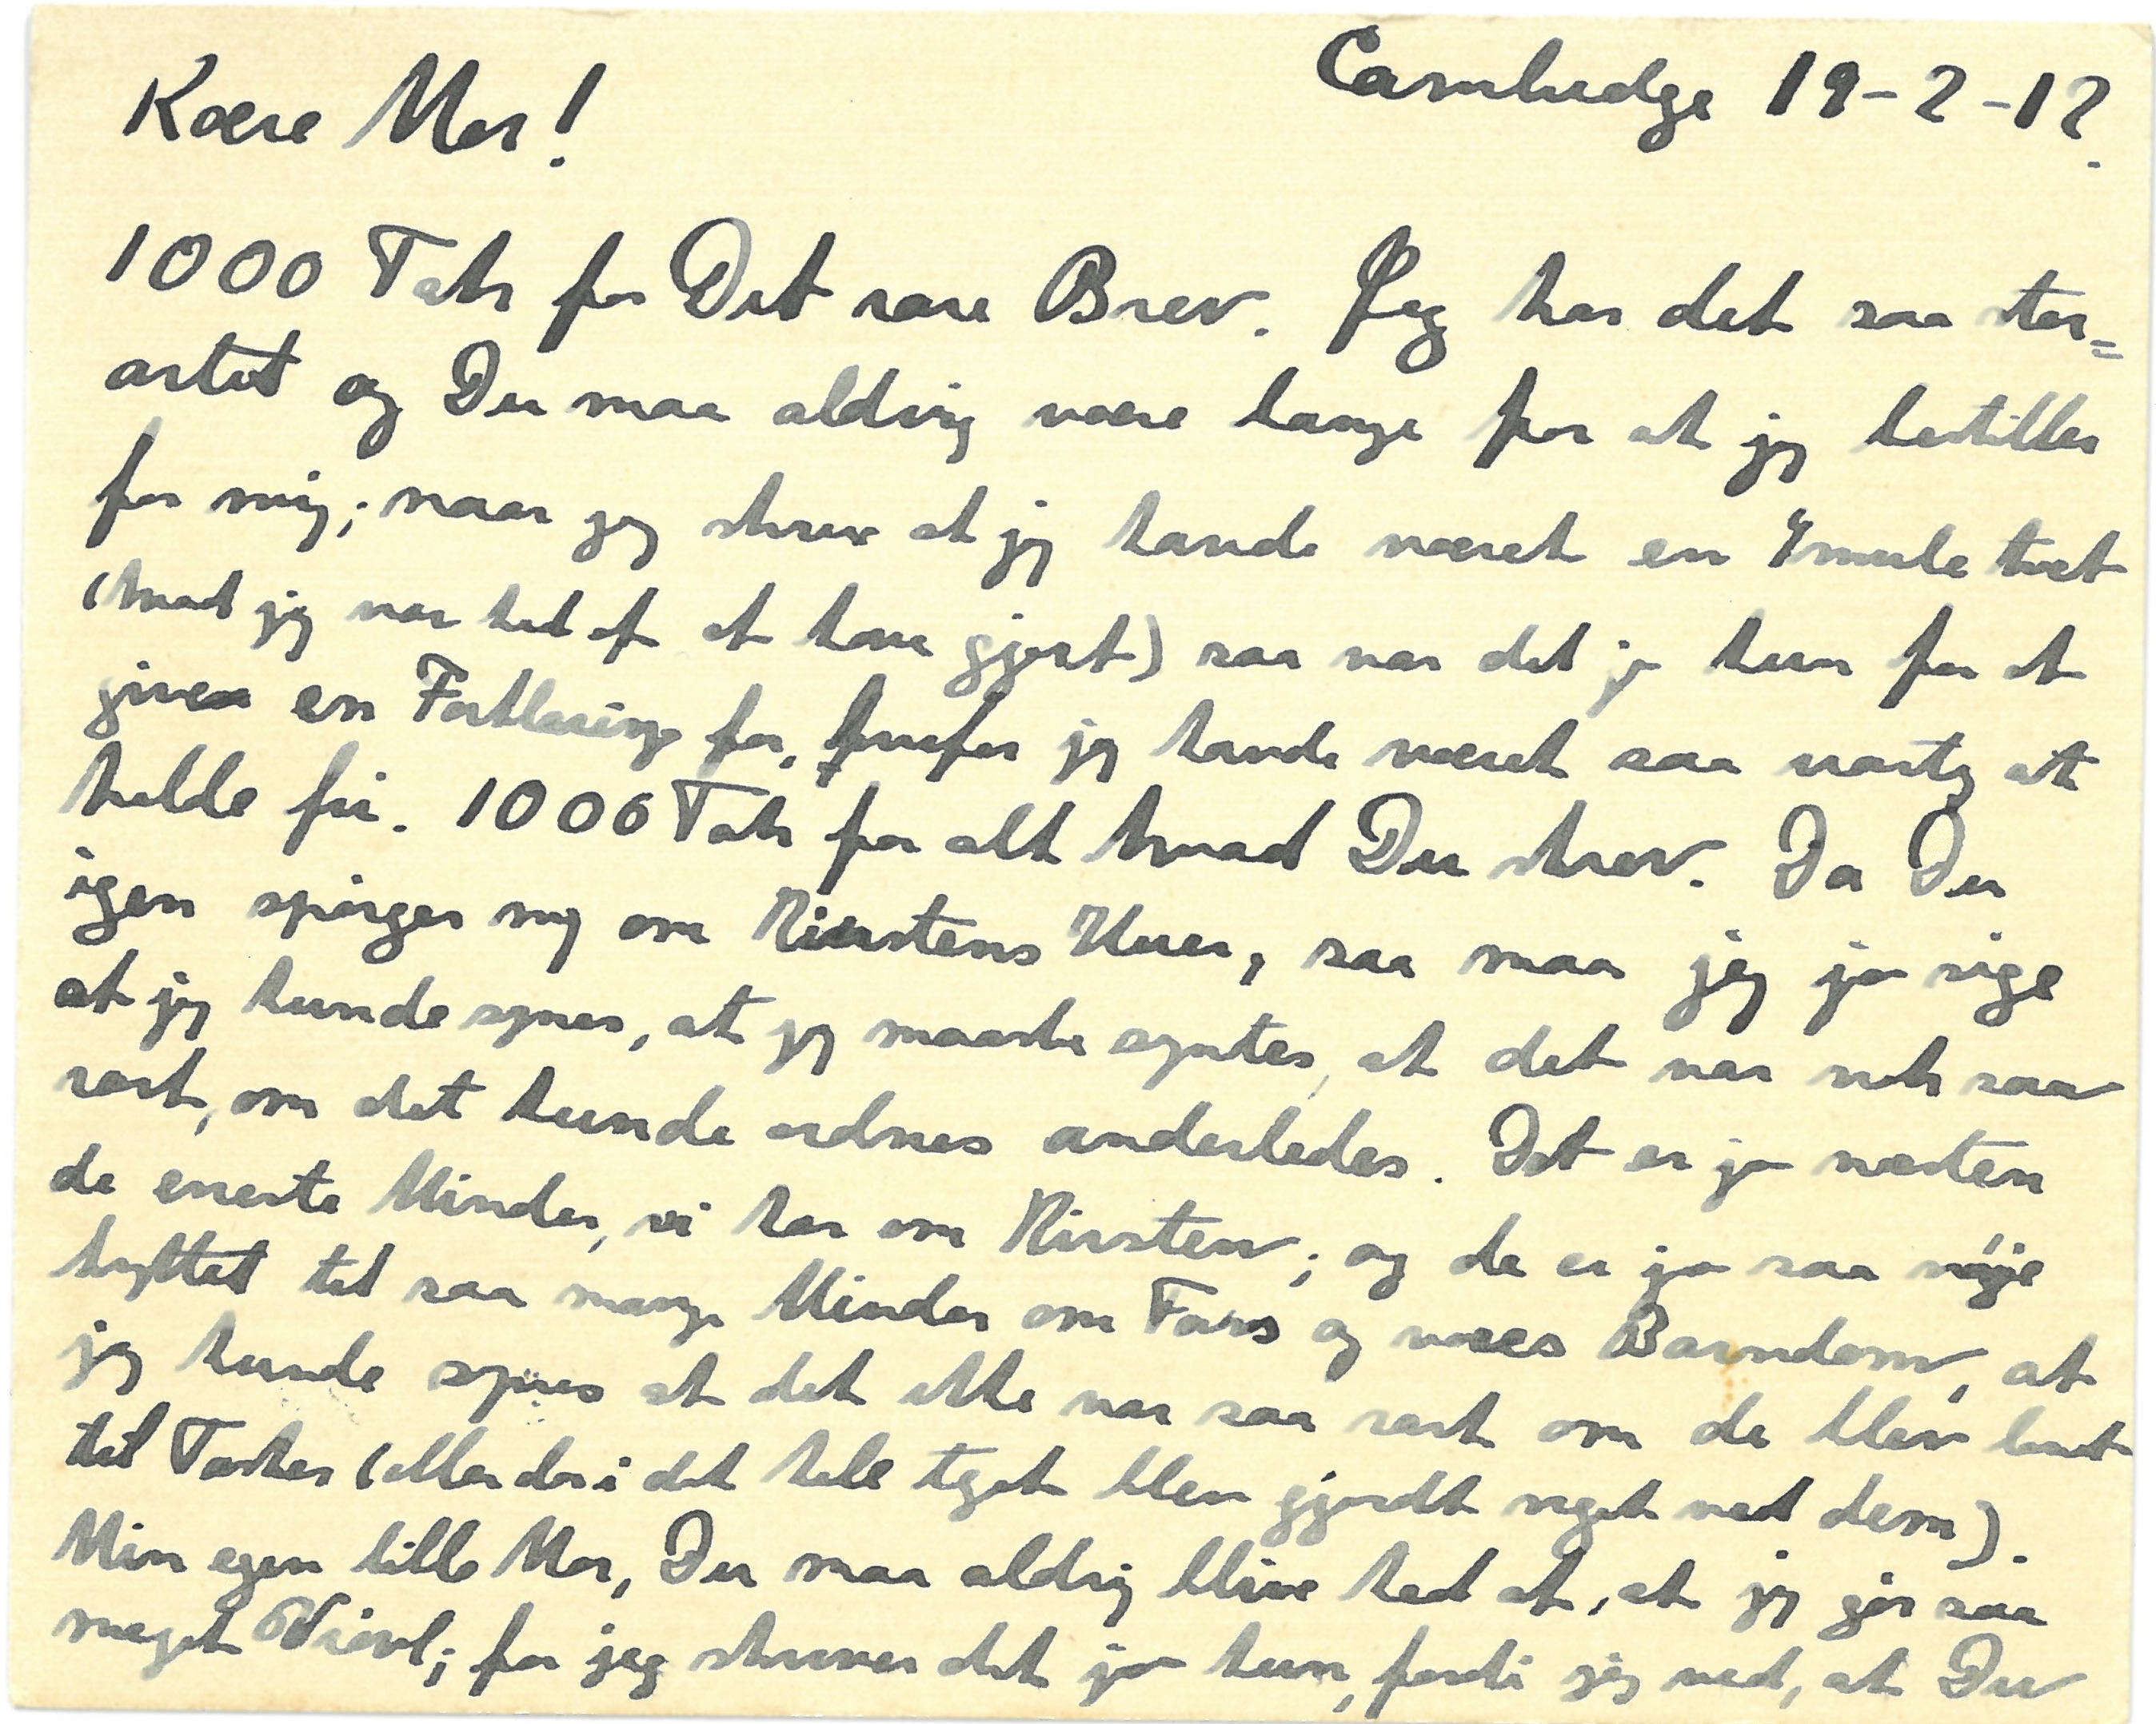 Kære Mor!
Cambridge 19-2-12.
1000 Tak for Dit rare Brev. Jeg har det saa stor=
artet og Du maa aldrig være bange for at jeg bestiller
for mig; naar jeg skrev at jeg havde været en Smule træt
(hvad jeg var ked af at have gjort) saa var det jo kun for at
give en Forklaring for, hvorfor jeg havde været saa vastig at
holde fri. 1000 Tak for alt hvad Du skrev. Da Du
igen spörger mig om Kirstens Uhr, saa maa jeg jo sige
at jeg kunde synes, at jeg maaske syntes, at det var nok saa
rart, om det kunde ordnes anderledes. Det er jo næsten
de eneste Minder, vi har om Kirsten; og de er jo saa nöje
knyttet til saa mange Minder om Fars og vores Barndom, at
jeg kunde synes at det ikke var saa rart om de blev lavet
til Tasker (eller der i det hele taget blev gjordt noget ved dem).
Min egen lille Mor, Du maa aldrig blive ked af, at jeg gör saa
meget Vrövl; for jeg skriver det jo kun, fordi jeg ved, at Du